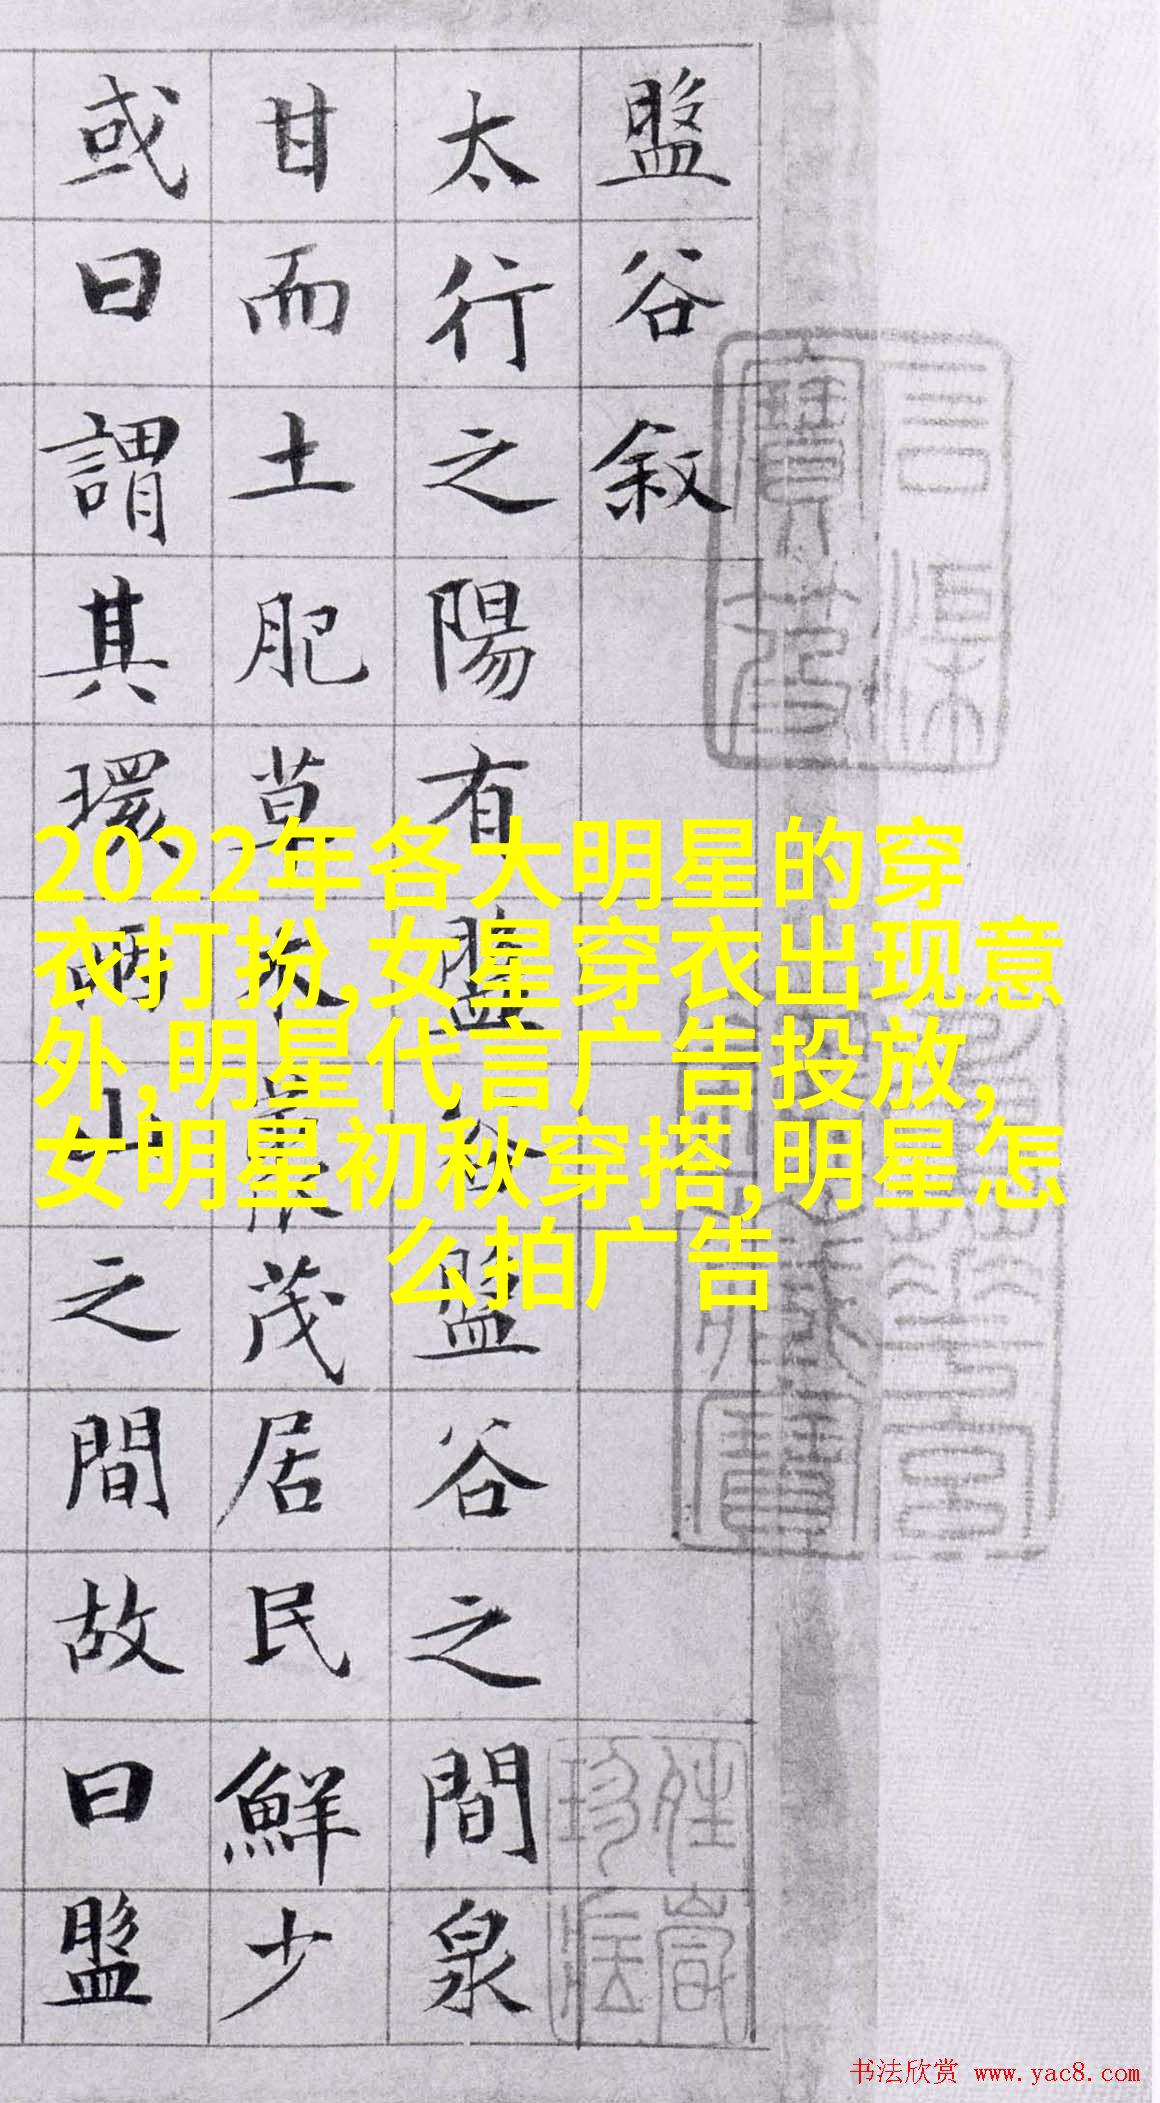 盤谷敘
太行之陽有盤谷盤谷之間泉
甘而土肥草木叢茂居民鮮少
或曰謂其環兩山之間故曰盤
2022年各大明星的穿
衣打扮,女星穿衣出现意
外,明星代言广告投放,
女明星初秋穿搭,明星怎
么拍广告
书法欣赏 www.yac8.com